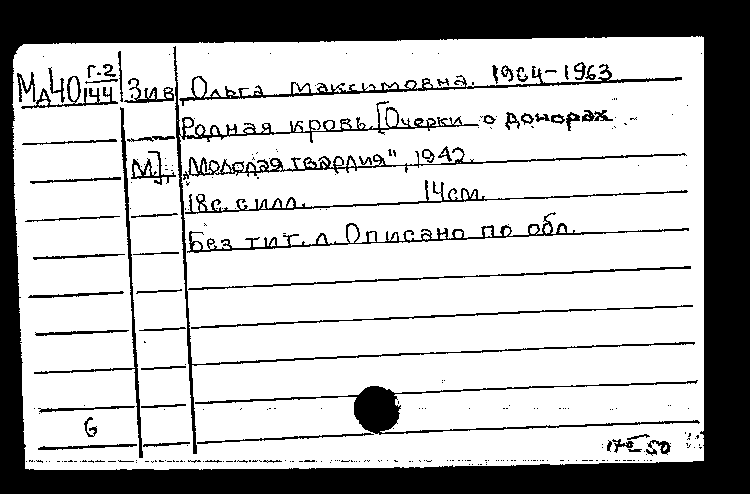 Мд40 Г-2/144 Зив, Ольга Максимовна. 1904-1963
Родная кровь. [Очерки о донорах
М], „Молодая гвардия", 1942.
18с. с илл. 14см.
Без тит. л. Описано по обл.
6
50